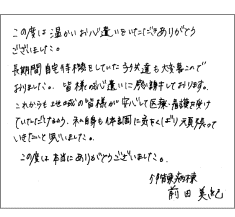 この度は温かいお心遣いをいただきありがとう
ございました。
長期間自宅待機をしていた
おりました。皆様の心遣いに感謝申しております。
これからも地域の皆様が安心して医療・看護を受け
ていただけるよう、私自身も体調に気をくばり頑張って
いきたいと思いました。
この度は本当にありがとうございました。
病棟
前田 美紀